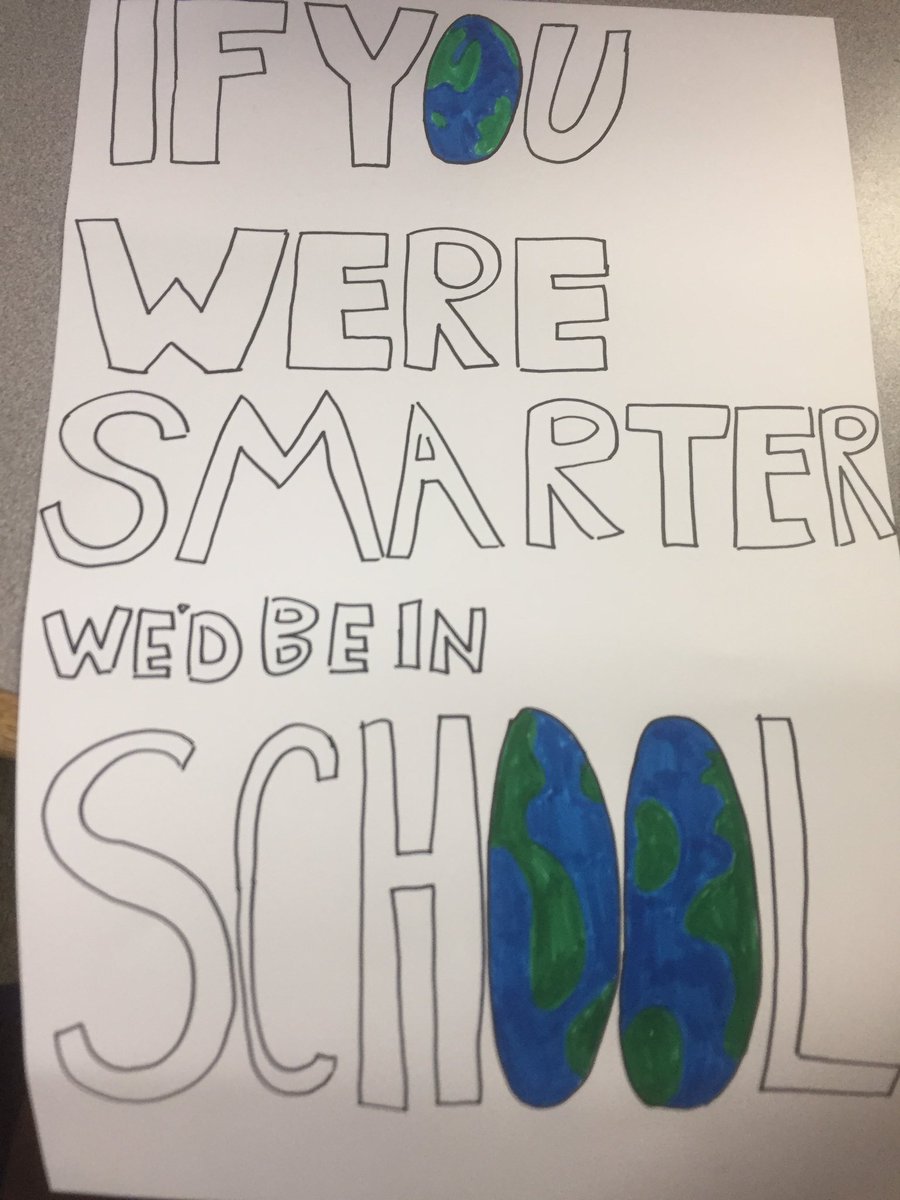 IF YOU
WERE
SMARTER
WE'D BE IN
SCHOOL